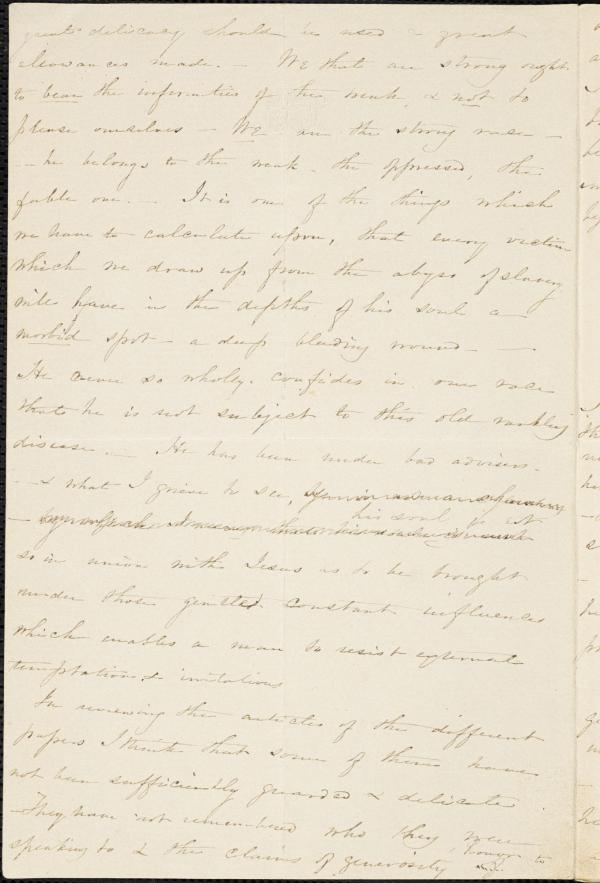 great delicacy should be used & great
allowances made. — We that are strong ought
to bear the infirmities of the weak, & not to
please ourselves — We are the strong race —
— he belongs to the weak — the oppressed, the
feeble one. — It is one of the things which
we have to calculate upon, that every victim
which we draw up from the abyss of slavery
will have in the depths of his soul a
morbid spot — a deep bleeding wound — —
He never so wholly confides in our race
that he is not subject to this old rankling
disease. — He has been under bad advisers —
— & what I grieve to see,
— his soul is not
so in union with Jesus as to be brought
under those gentle constant influences
which enables a man to resist external
temptations & irritations
In reviewing the articles of the different
papers I think that some of them have
not been sufficiently guarded & delicate.
— They have not remembered who they were
speaking to & the claims of generosity, honor to